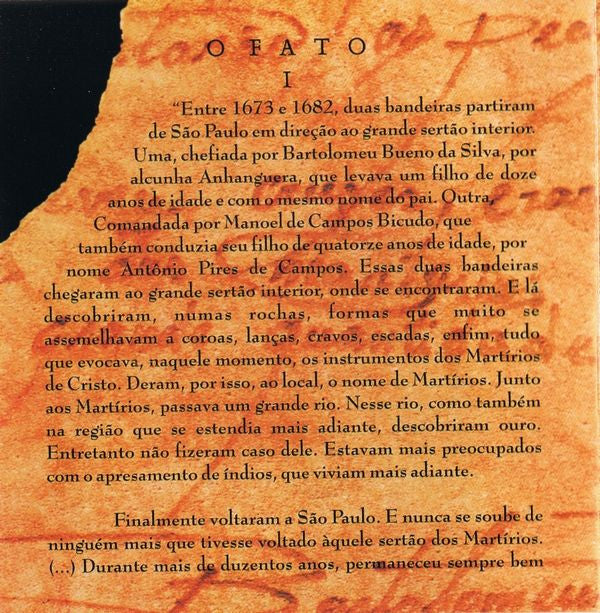 O FATO
I
“Entre 1673 e 1682, duas bandeiras partiram
de São Paulo em direção ao grande sertão interior.
Uma, chefiada por Bartolomeu Bueno da Silva, por
alcunha Anhanguera, que levava um filho de doze
anos de idade e com o mesmo nome do pai. Outra,
Comandada por Manoel de Campos Bicudo, que
também conduzia seu filho de quatorze anos de idade, por
nome Antônio Pires de Campos. Essas duas bandeiras
chegaram ao grande sertão interior, onde se encontraram. E lá
descobriram, numas rochas, formas que muito se
assemelhavam a coroas, lanças, cravos, escadas, enfim, tudo
que evocava, naquele momento, os instrumentos dos Martírios
de Cristo. Deram, por isso, ao local, o nome de Martírios. Junto
aos Martírios, passava um grande rio. Nesse rio, como também
na região que se estendia mais adiante, descobriram ouro.
Entretanto não fizeram caso dele. Estavam mais preocupados
com o apresamento de índios, que viviam mais adiante.
Finalmente voltaram a São Paulo. E nunca se soube de
ninguém mais que tivesse voltado àquele sertão dos Martírios.
(...) Durante mais de duzentos anos, permaneceu sempre bem